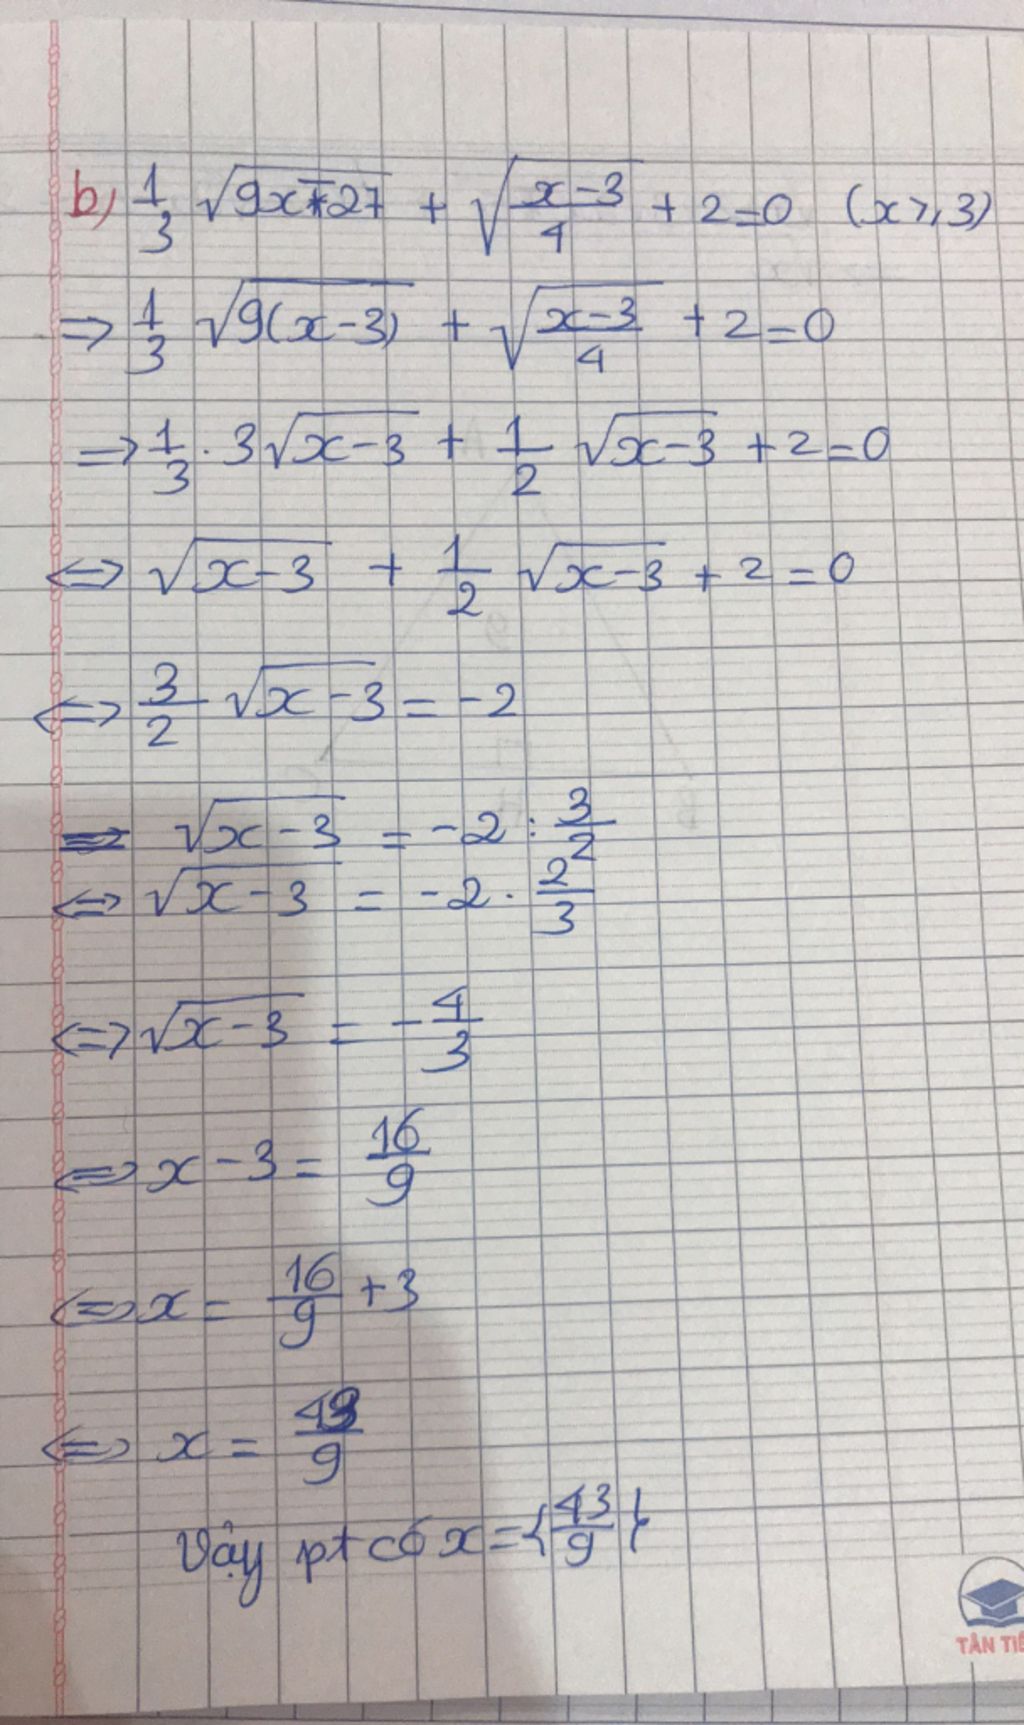 b) 1/3 √(9x-27) + √((x-3)/4) + 2 = 0 (x ≥ 3)
=> 1/3 √(9(x-3)) + √((x-3)/4) + 2 = 0
=> 1/3 . 3√(x-3) + 1/2 √(x-3) + 2 = 0
<=> √(x-3) + 1/2 √(x-3) + 2 = 0
<=> 3/2 √(x-3) = -2
=> √(x-3) = -2 : 3/2
<=> √(x-3) = -2 . 2/3
<=> √(x-3) = -4/3
<=> x-3 = 16/9
<=> x = 16/9 + 3
<=> x = 43/9
Vậy pt có x = {43/9}